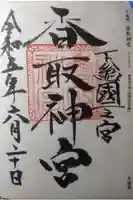 下総國一之宮
香取神宮
令和五年六月二十日